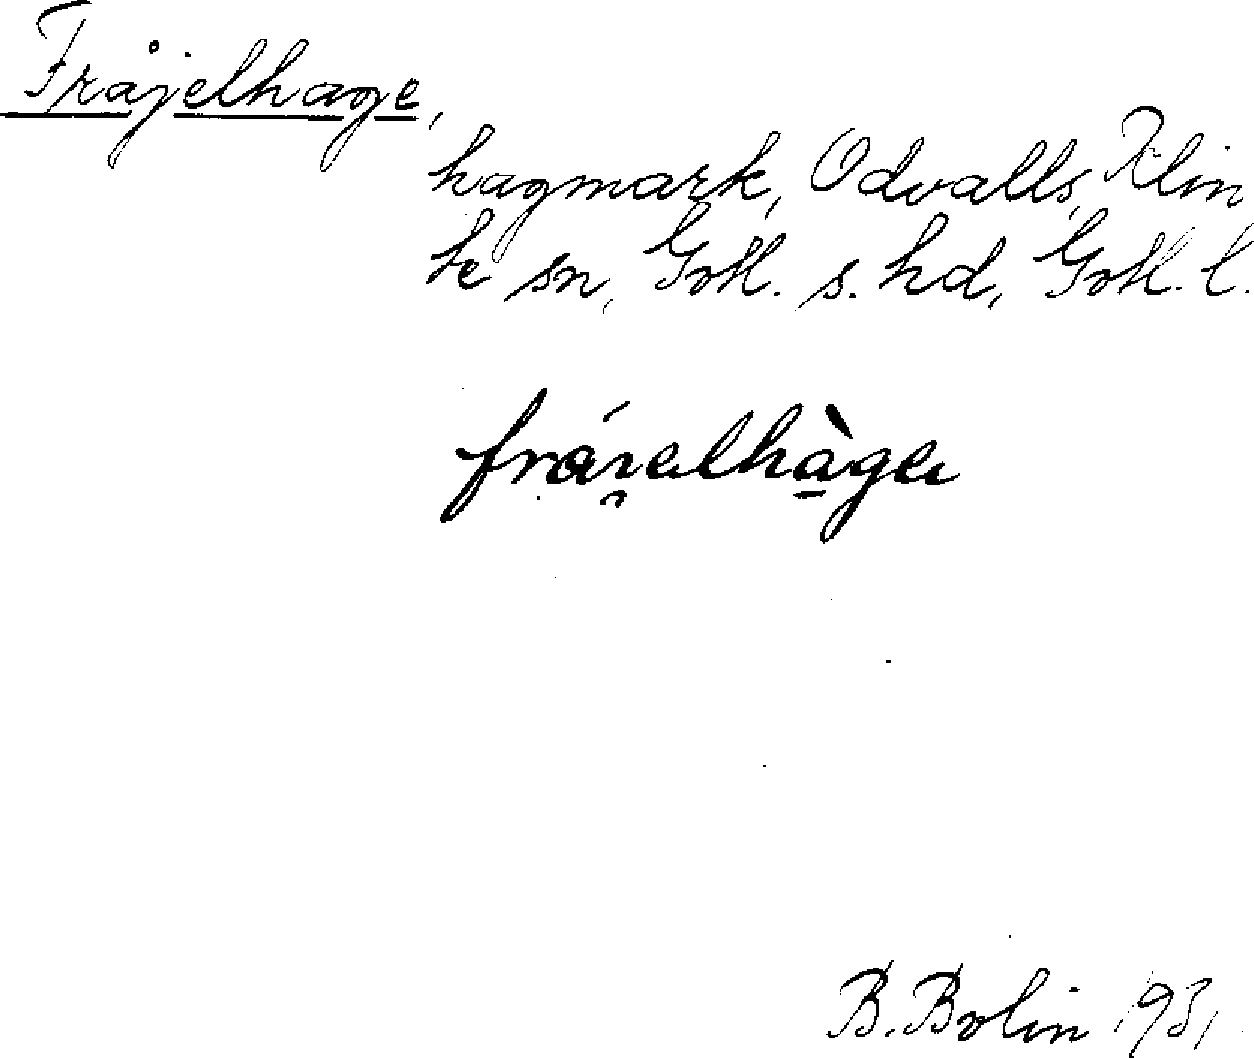 Fråjelhage,
hagmark, Odvalls, Klin
te sn, Gotl. s. hd, Gotl. l.
B. Bolin 1931